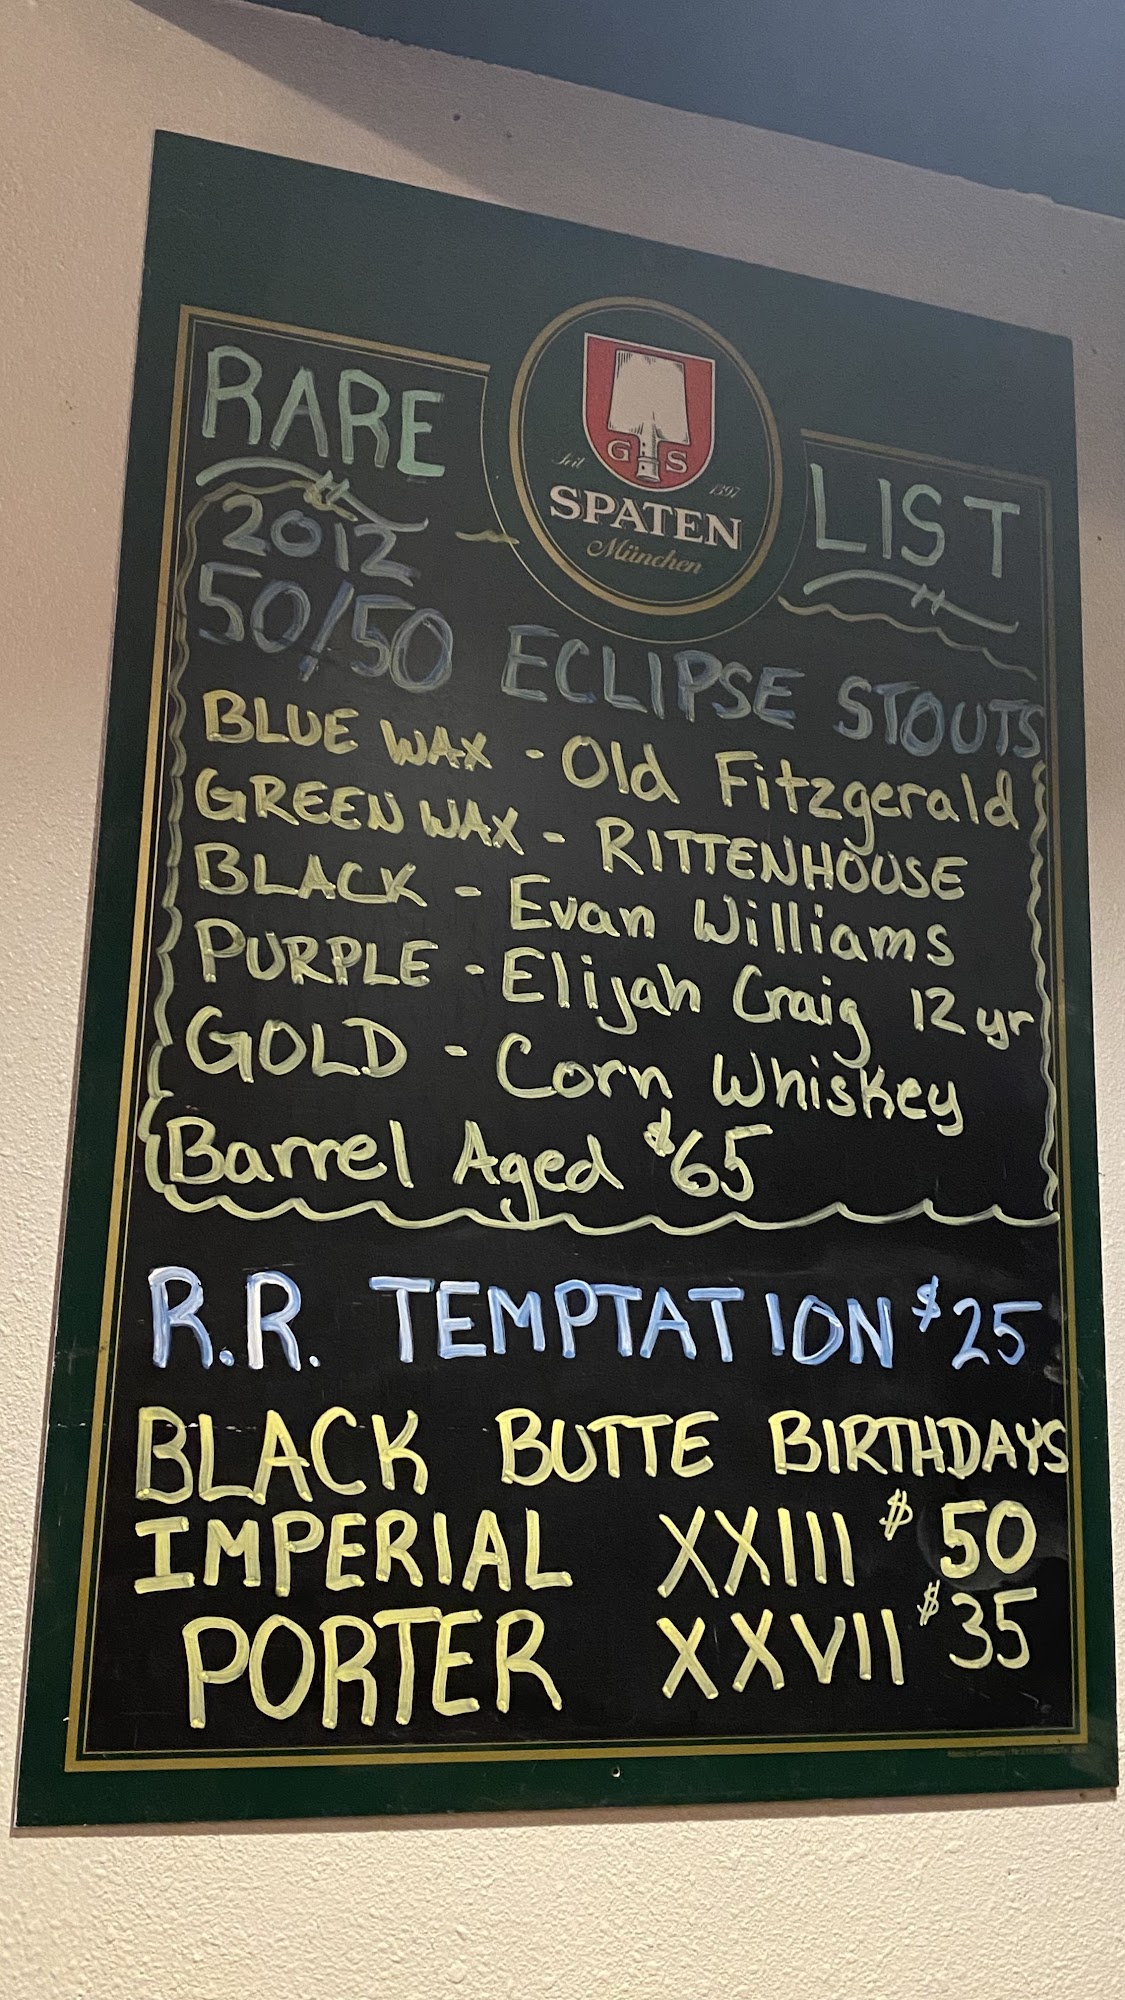 RARE LIST
G S
Seit 1397
SPATEN
München
2012
50/50 ECLIPSE STOUTS
BLUE WAX - Old Fitzgerald
GREEN WAX - RITTENHOUSE
BLACK - Evan Williams
PURPLE - Elijah Craig 12 yr
GOLD - Corn Whiskey
Barrel Aged $65
R.R. TEMPTATION $25
BLACK BUTTE BIRTHDAYS
IMPERIAL XXIII $50
PORTER XXVII $35